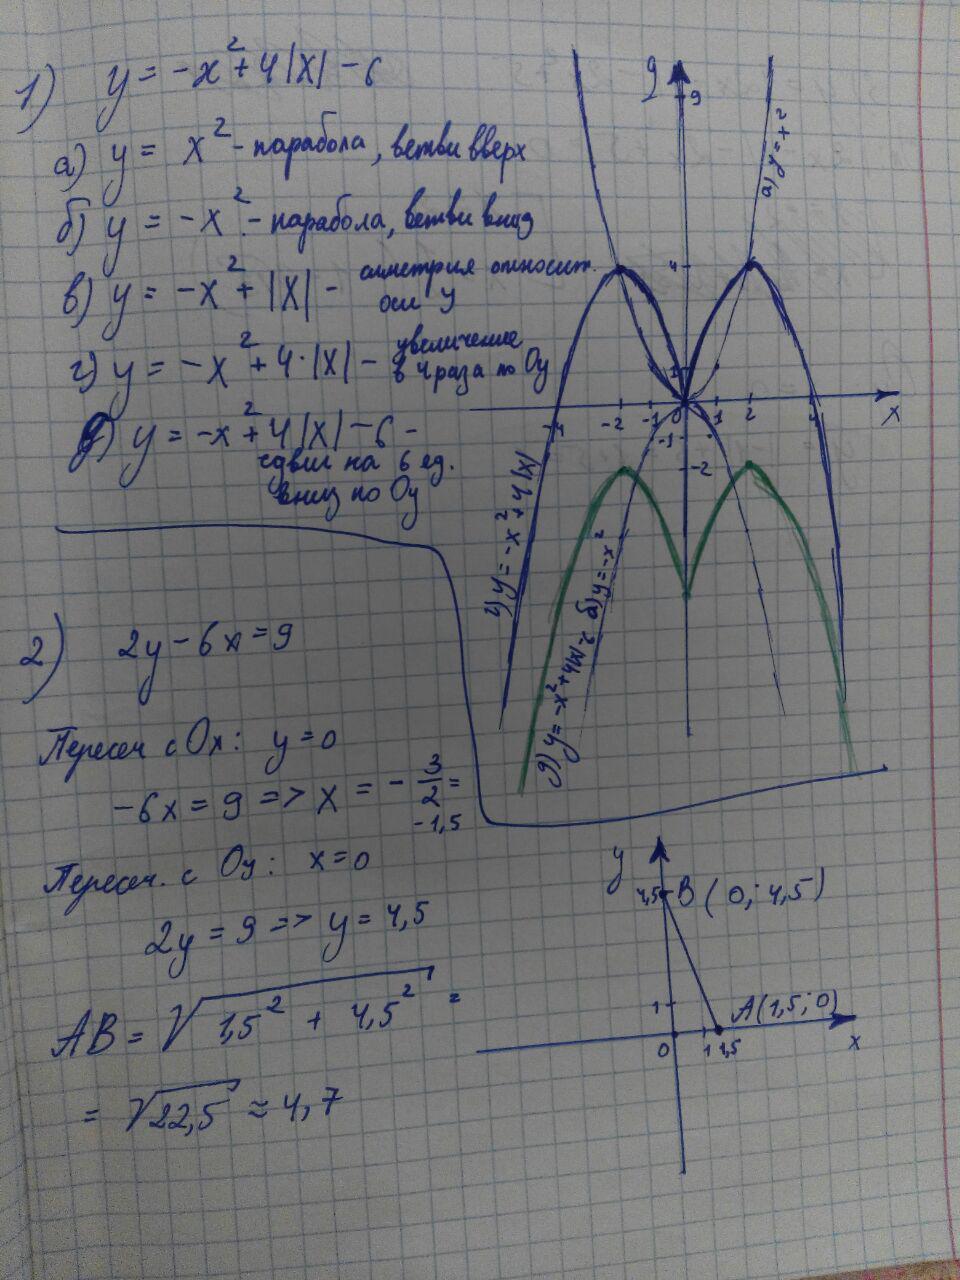 1) y = -x² + 4|x| - 6
а) y = x² - парабола, ветви вверх
б) y = -x² - парабола, ветви вниз
в) y = -x² + |x| - симетрия относит.
оси y
г) y = -x² + 4·|x| - увеличение
в 4 раза по Oy
д) y = -x² + 4|x| - 6 -
сдвиг на 6 ед.
вниз по Oy
9
а) y = x²
4
1
x
-2 -1 0 1 2
-1
-2
г) y = -x² + 4|x|
б) y = -x²
2) 2y - 6x = 9
Пересеч с Ox: y = 0
-6x = 9 => x = - 3/2 =
-1,5
Пересеч. с Oy: x = 0
2y = 9 => y = 4,5
AB = √1,5² + 4,5² =
= √22,5 ≈ 4,7
y
4,5 B (0; 4,5)
1 A(1,5; 0)
0 1 1,5 x